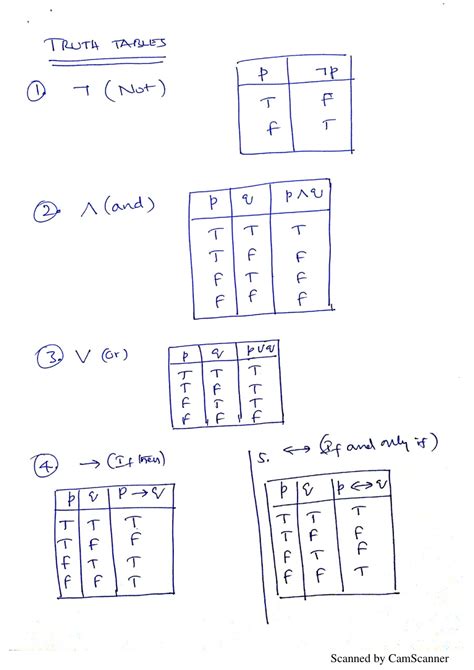 TRUTH TABLES
① ¬ (Not)
p ¬p
T F
F T
②. ∧ (and)
p q p∧q
T T T
T F F
F T F
F F F
③. ∨ (or)
p q p∨q
T T T
T F T
F T T
F F F
④ → (If then)
p q p→q
T T T
T F F
F T T
F F T
5. ↔ (If and only if)
p q p↔q
T T T
T F F
F T F
F F T
Scanned by CamScanner